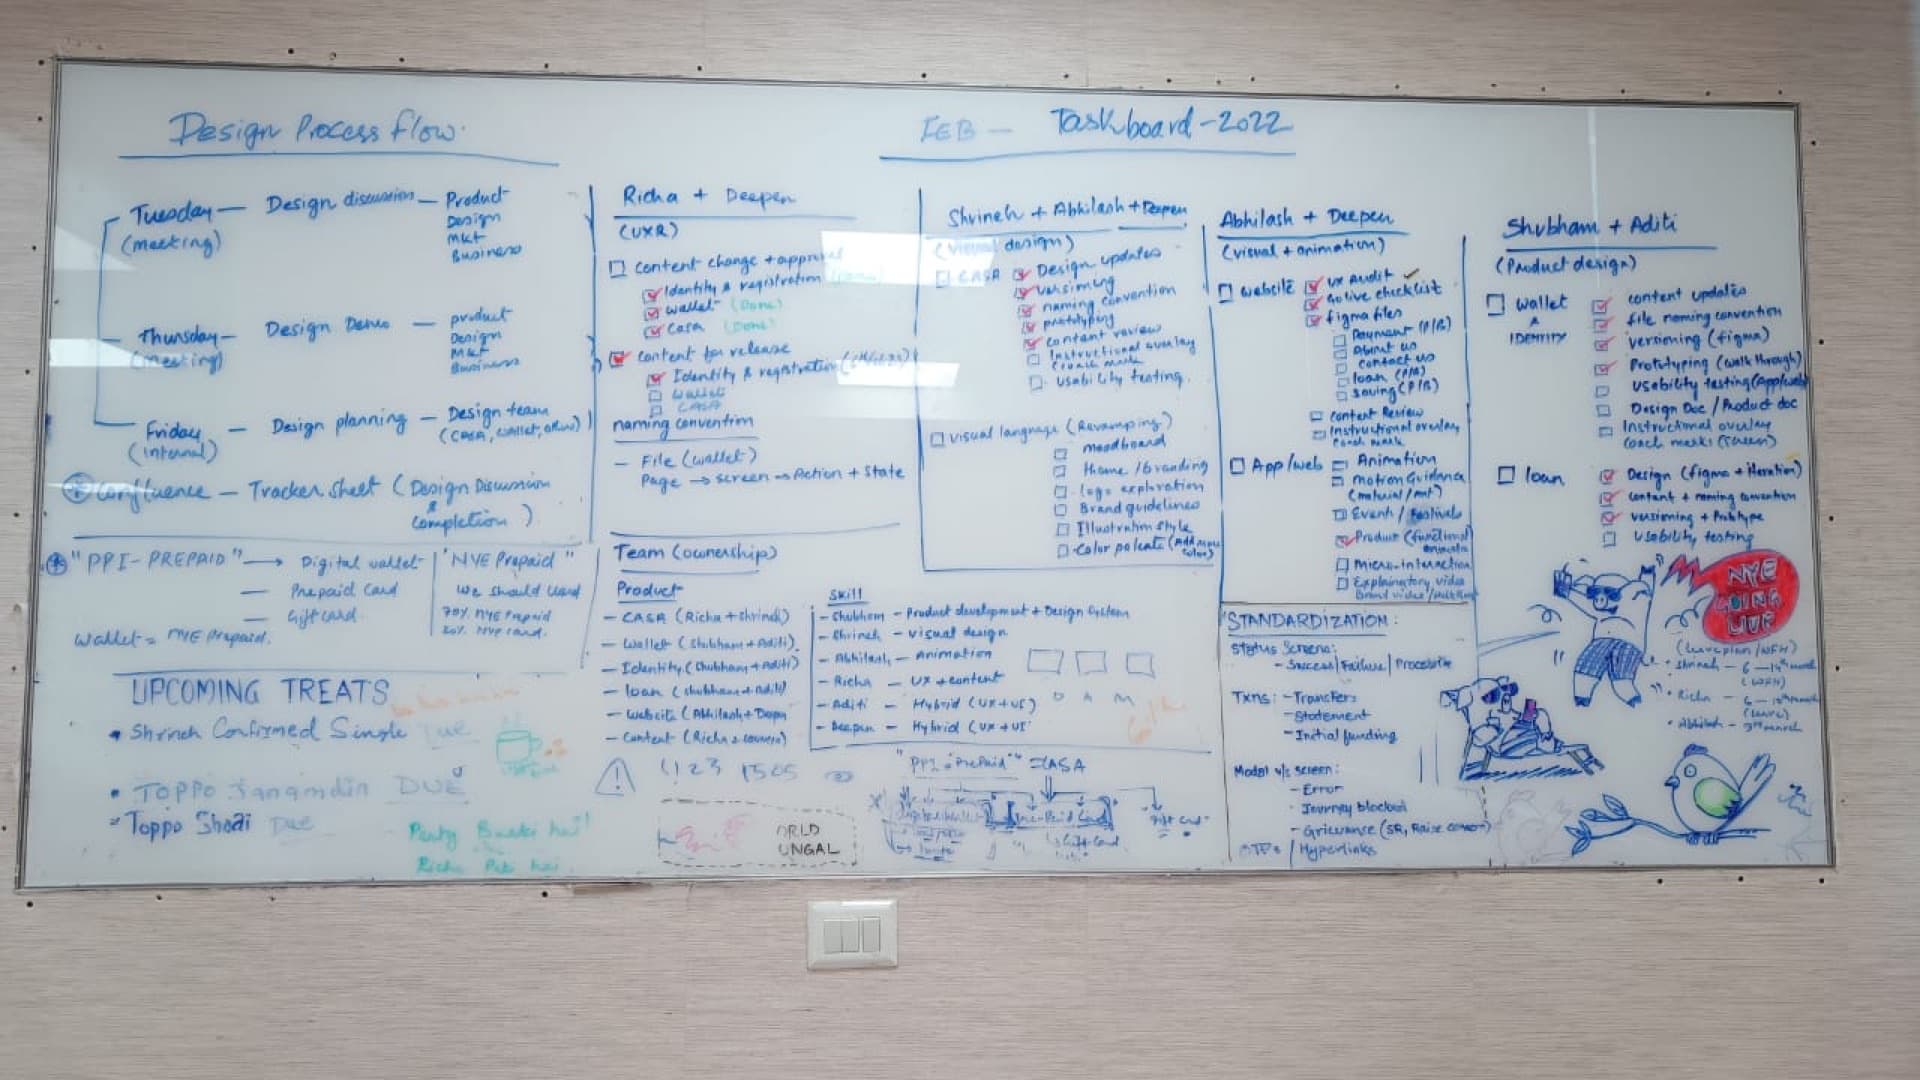 Design Process flow.
IEB - Taskboard-2022
Tuesday — Design discussion — Product
(meeting)
Design
Mkt
Business
Thursday — Design Demo — product
(meeting)
Design
Mkt
Business
Friday — Design planning — Design team
(Internal)
(CASA, wallet, others)
Confluence — Tracker sheet (Design Discussion
&
completion)
"PPI-PREPAID" → Digital wallet
— Prepaid Card
— Gift card
wallet = NYE Prepaid.
"NYE Prepaid"
we should use
70% NYE Prepaid
UPCOMING TREATS
• Shrineh Confirmed Single Due
• TOPPO Janamdin DUE
• Toppo Shadi Due
Party Baaki hai!
Richa
Richa + Deepen
(UXR)
content change + approval
Identity & registration
wallet (Done)
Casa (Done)
content for release
Identity & registration
wallet
CASA
naming convention
— File (wallet)
Page → screen → Action + State
Team (ownership)
Product
— CASA (Richa + Shrineh)
— Wallet (Shubham + Aditi)
— Identity (Shubham + Aditi)
— loan (Shubham + Aditi)
— website (Abhilash + Deepen
— Content (Richa
Skill
— Shubham — Product development + Design System
— Shrineh — visual design
— Abhilash — Animation
— Richa — UX + content
— Aditi — Hybrid (UX + UI)
— Deepen — Hybrid (UX + UI
"PPI - PrePaid" CASA
ORLD
UNGAL
Shrineh + Abhilash + Deepen
(visual design)
CASA
Design updates
versioning
naming convention
prototyping
content review
Instructional overlay
(coach mark
usability testing.
visual language (Revamping)
moodboard
Theme / branding
logo exploration
Brand guidelines
Illustration style
color palette (Add more
color)
Abhilash + Deepen
(visual + animation)
website
UX Audit
Go live checklist
figma files
Payment (P/B)
About us
Contact us
loan (P/B)
saving (P/B)
content Review
Instructional overlay
coach mark
App/web
Animation
motion Guidance
Event / Festivals
Product (functional
Micro-interaction
Explainatory video
STANDARDIZATION:
Status Screens:
- Success/Failure/Processing
Txns: - Transfers
- Statement
- Initial funding
Modal v/s screen:
- Error
- Journey blocked
- Grievance (SR, Raise
Hyperlinks
Shubham + Aditi
(Product design)
wallet
&
IDENTITY
content updates
file naming convention
versioning (figma)
Prototyping (walk through)
usability testing (App/web)
Design Doc / Product doc
Instructional overlay
coach marks (screen)
loan
Design (figma + iteration)
content + naming convention
versioning + Prototype
usability testing
NYE
GOING
LIVE
(leave plan / WFH)
• Shrineh — 6
(WFH)
• Richa — 6
(leave)
• Abhilash